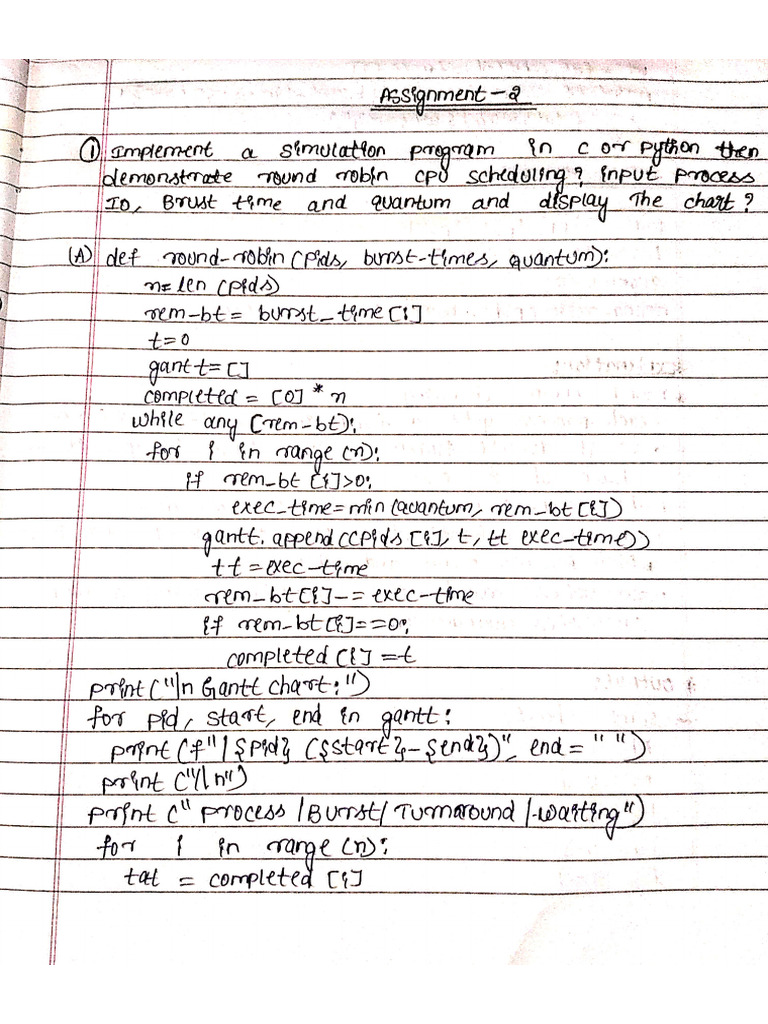 Assignment-2
① Implement a simulation program in C or Python then
demonstrate round robin CPU scheduling? input process
ID, Brust time and quantum and display The chart?
(A) def round-robin (pids, burst-times, quantum):
n= len (pids)
rem-bt = burst_time [i]
t=0
gantt= []
completed = [0] * n
while any (rem-bt):
for i in range (n):
if rem_bt [i]>0:
exec_time=min (quantum, rem_bt [i])
gantt. append ((pids [i], t, tt exec-time))
tt =exec-time
rem_bt[i]-= exec-time
if rem-bt[i]==0:
completed [i] =t
print ("\n Gantt chart:")
for pid, start, end in gantt:
print (f"| {pid} ({start}-{end})", end = " ")
print ("|\n")
print (" process |Burst| Turnaround |-waiting")
for i in range (n):
tat = completed [i]